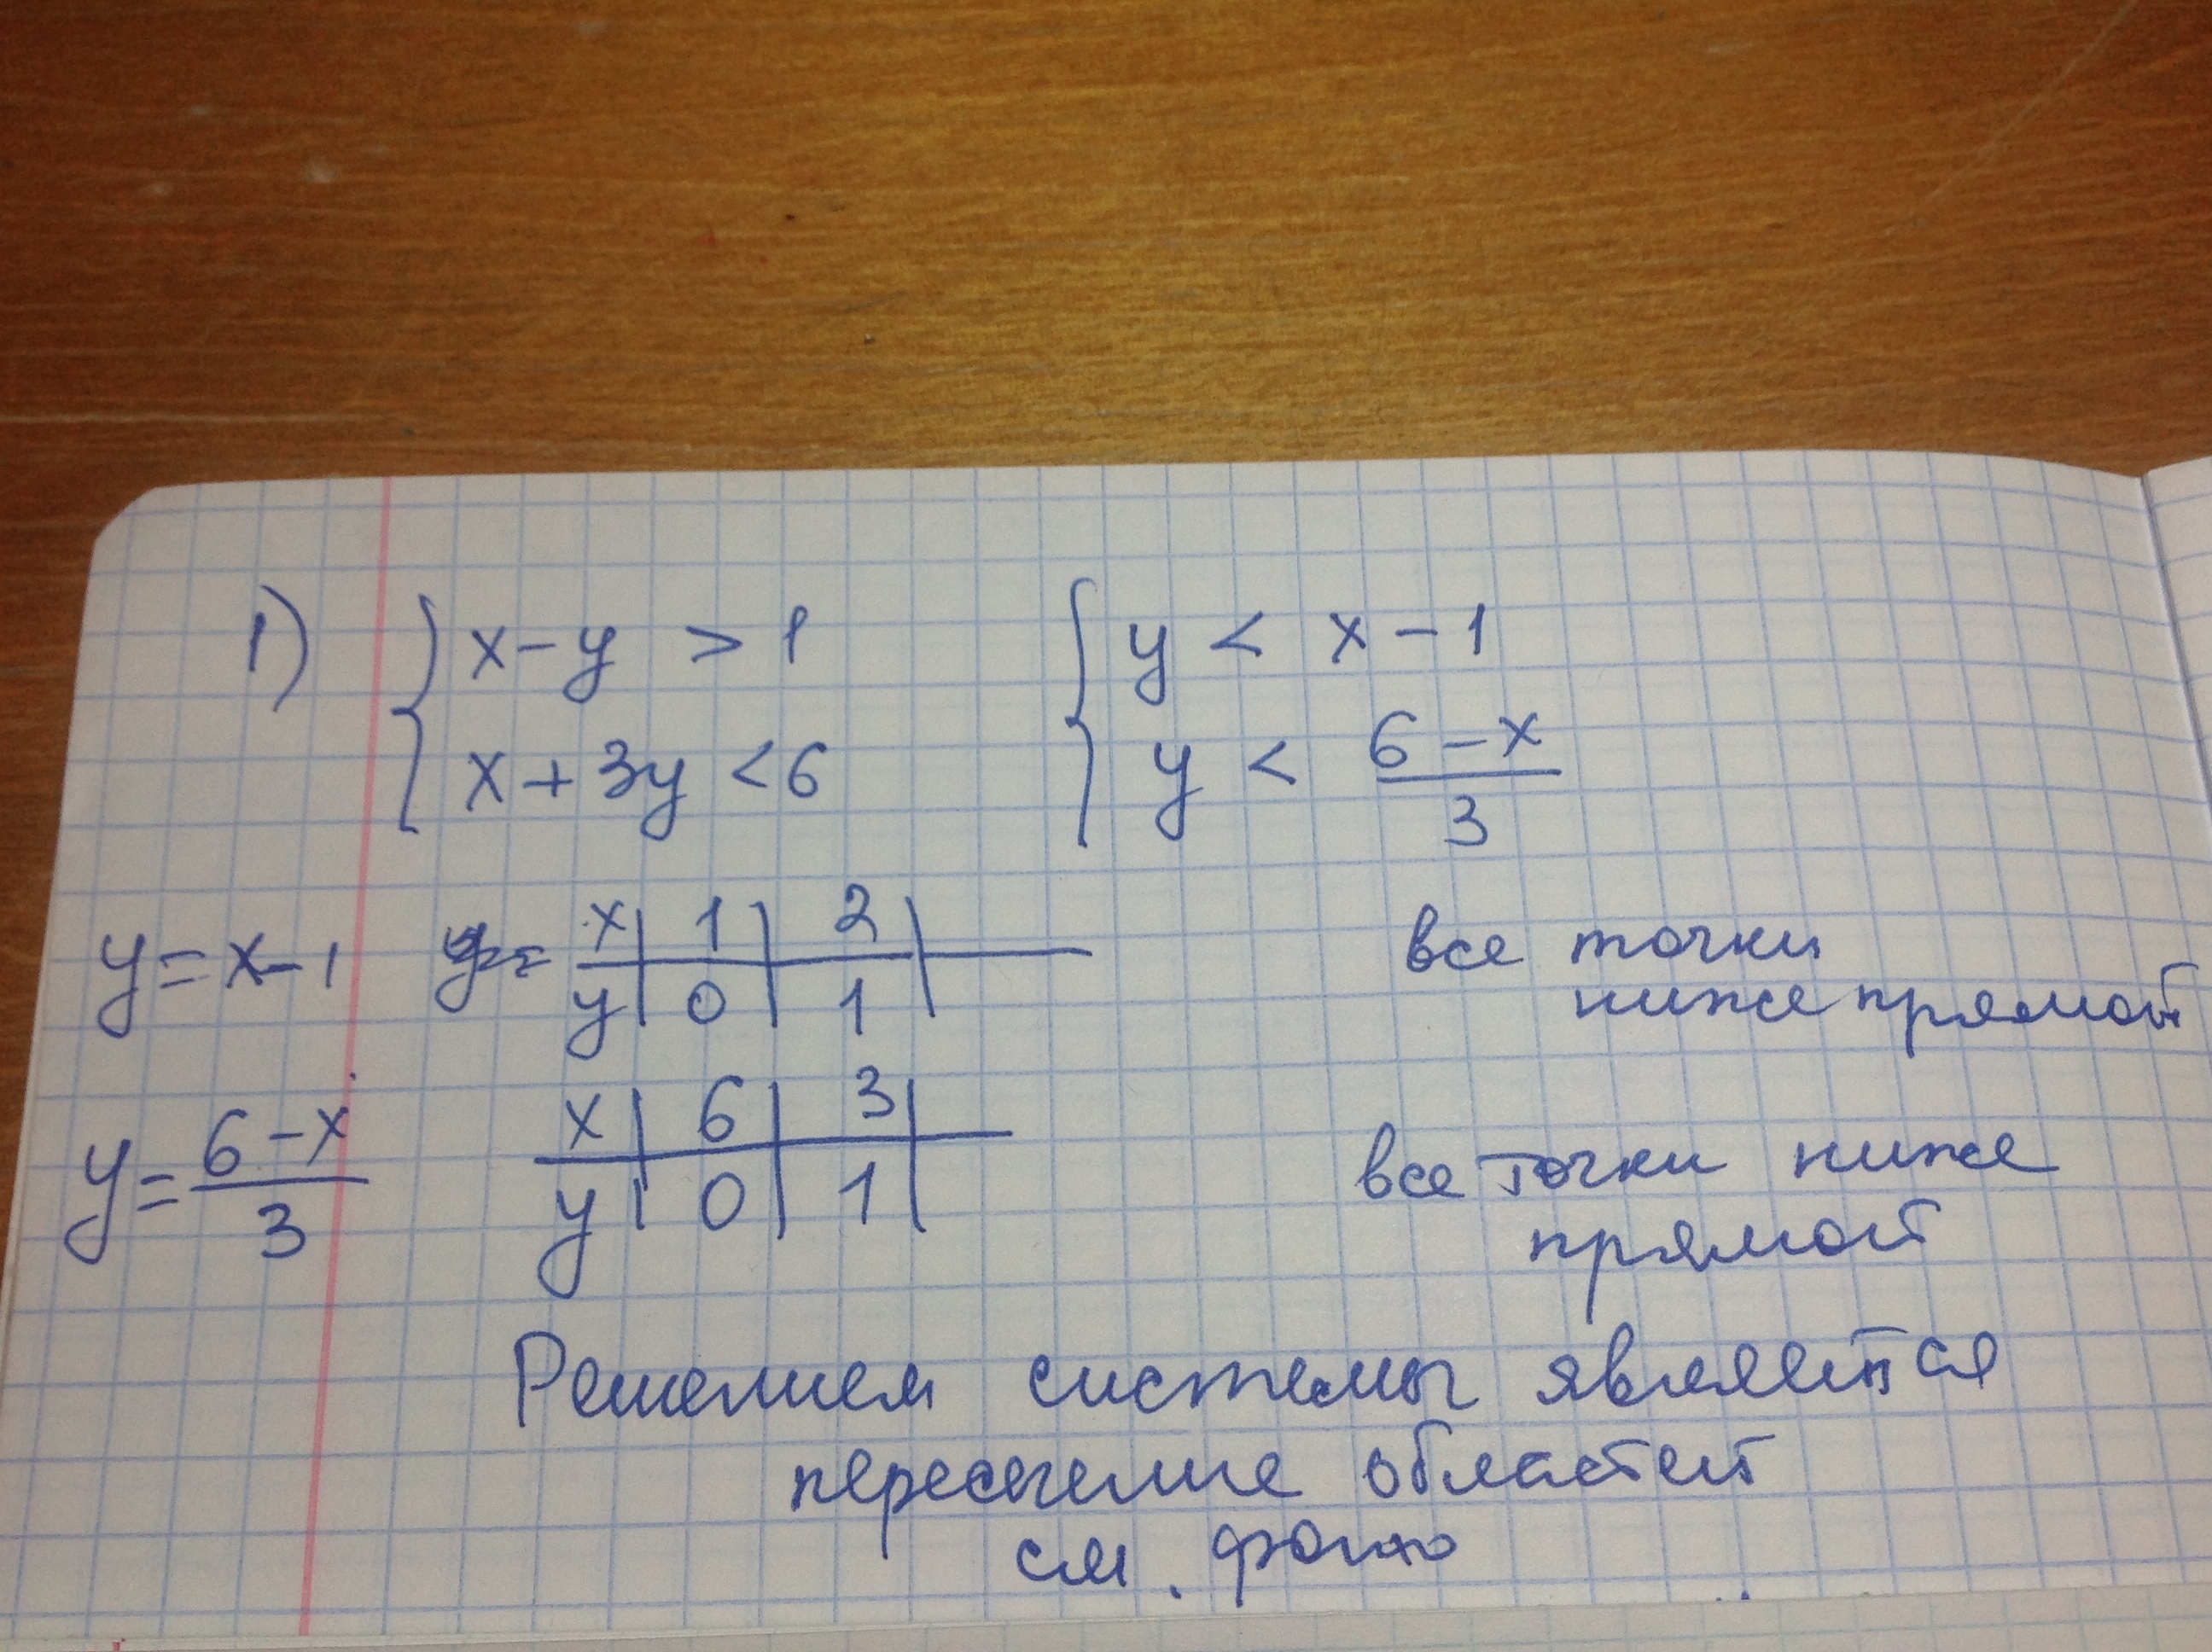 1) { x-y > 1 { y < x-1
x+3y <6 y < 6-x/3
y=x-1 x | 1 | 2 | все точки
y | 0 | 1 ниже прямой
y=6-x/3 x | 6 | 3 | все точки ниже
y | 0 | 1 | прямой
Решением системы является
пересечение областей
см. фото